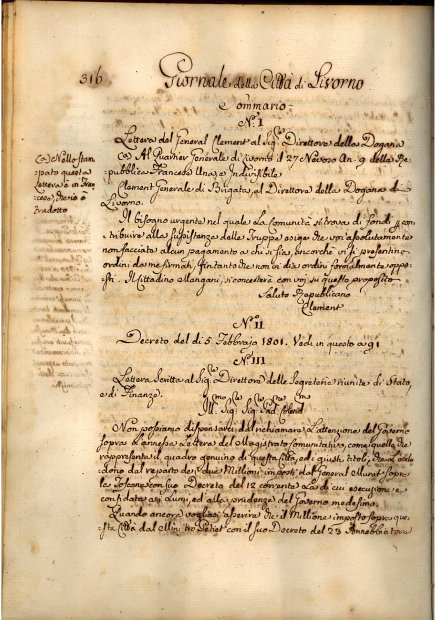 316
Giornale della Città di Livorno
Sommario.
N.º I
Lettera del General Clement al Sig.re Direttore della Dogana
(a) Al Quartier Generale di Livorno il 27 Nevoso An. 9 della Re-
pubblica Francese Una, e Indivisibile
Clement Generale di Brigata, al Direttore della Dogana di
Livorno.
Il bisogno urgente nel quale la Comunità si trova di fondi per
contribuire alla sussistenza delle Truppe esige che voi assolutamente
non facciate alcun pagamento a chi si sia, ancorchè vi si presentino
ordini da me firmati, fintanto che non vi dia ordini formalmente oppo-
sti. Il Cittadino Mangani, si concerterà con voi su questo proposito
Saluto Republicano
Clement
(a) Nello stam-
pato questa
Lettera è in Fran-
cese, e
tradotto
N.º II
Decreto del dì 5. Febbraio 1801. Vedi in questo a 91
N.º III
Lettera scritta al Sig.re Direttore delle Segreterie riunite di Stato,
e di Finanze.
Ill.mo Sig.re Sig.re Pad.ne Colend.mo
Non possiamo dispensarci dal richiamare l'attenzione del Governo
sopra l'annessa Lettera del Magistrato Comunitativo, come quella che
rappresenta il quadro genuino di questa Città, ed i giusti titoli, che
dono dal reparto de' due Millioni imposti dal General Murat sopra
la Toscana con suo Decreto del 12 corrente la di cui esecuzione è
confidata a Lumi, ed alla prudenza del Governo medesimo.
Quando ancora vogliasi asserire che il Millione imposto sopra que-
sta Città dal Ministro Petiet con il suo Decreto del 23 Annebbiatore